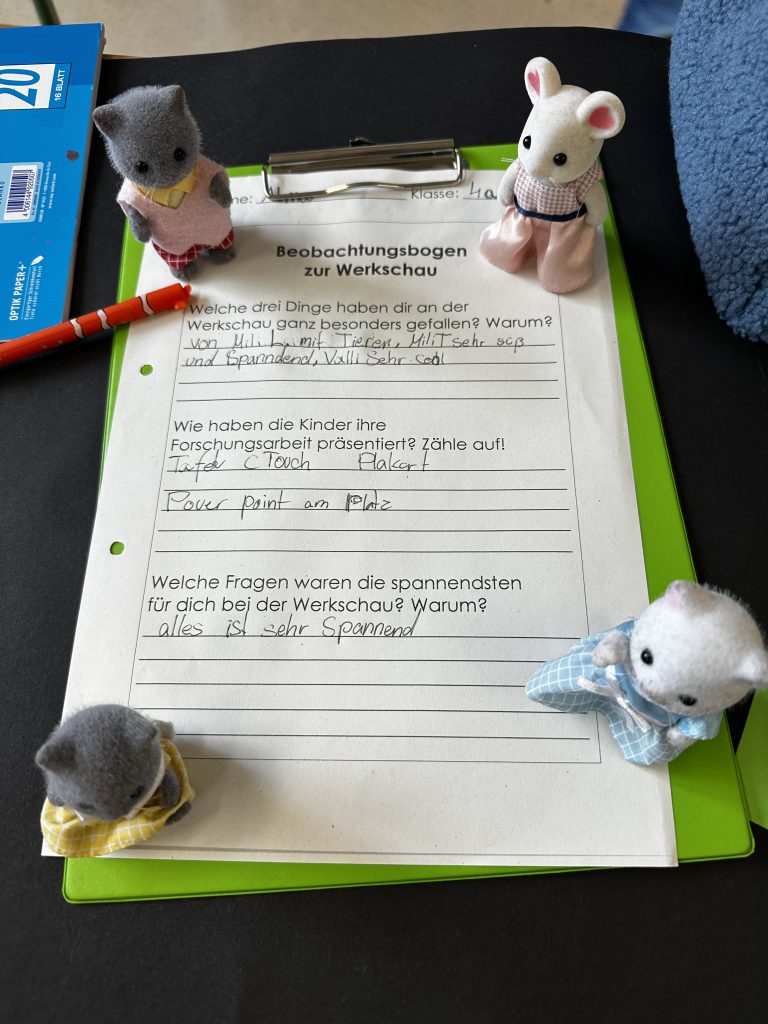 20
16 BLATT
OPTIK PAPER+
Klasse: 4a
Beobachtungsbogen
zur Werkschau
Welche drei Dinge haben dir an der
Werkschau ganz besonders gefallen? Warum?
von Mili L. mit Tieren, Mili T sehr süß
und Spanndend, Valli Sehr cool
Wie haben die Kinder ihre
Forschungsarbeit präsentiert? Zähle auf!
Tafel CTouch Plakart
Pover point am Platz
Welche Fragen waren die spannendsten
für dich bei der Werkschau? Warum?
alles ist sehr Spannend